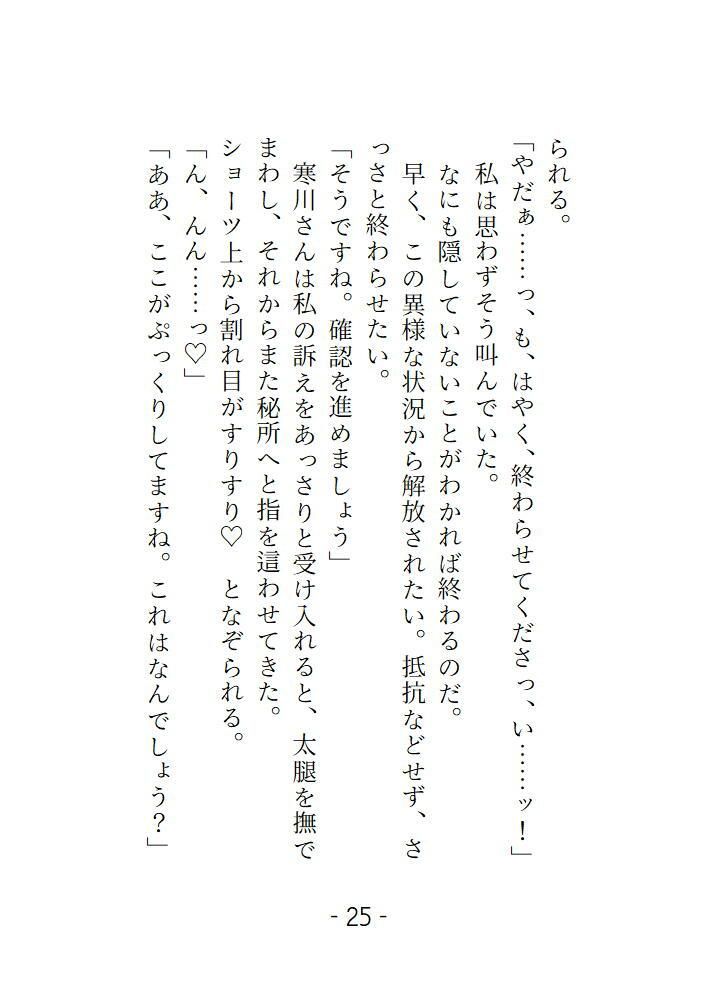 られる。
「やだぁ……っ、も、はやく、終わらせてくださっ、い……ッ！」
私は思わずそう叫んでいた。
なにも隠していないことがわかれば終わるのだ。
早く、この異様な状況から解放されたい。抵抗などせず、さ
っさと終わらせたい。
「そうですね。確認を進めましょう」
寒川さんは私の訴えをあっさりと受け入れると、太腿を撫で
まわし、それからまた秘所へと指を這わせてきた。
ショーツ上から割れ目がすりすり♡　となぞられる。
「ん、んん……っ♡」
「ああ、ここがぷっくりしてますね。これはなんでしょう？」
- 25 -